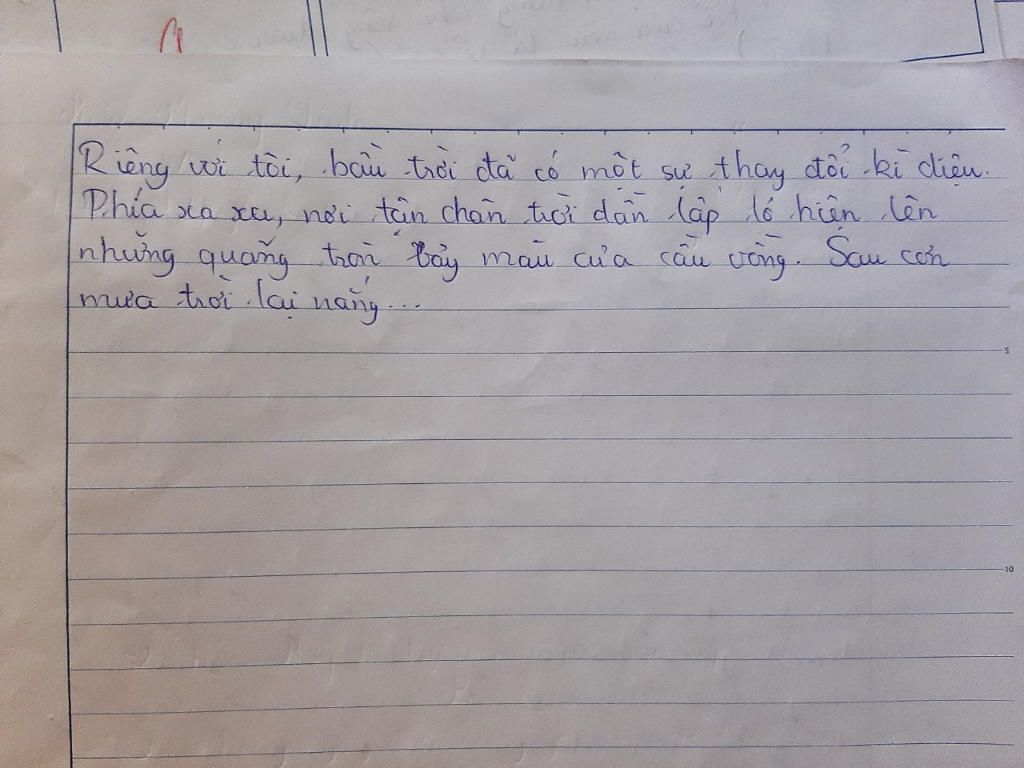 Riêng với tôi, bầu trời đã có một sự thay đổi kì diệu.
Phía xa xa, nơi tận chân trời dần lấp ló hiện lên
những quầng tròn bảy màu của cầu vồng. Sau cơn
mưa trời lại nắng...
5
10